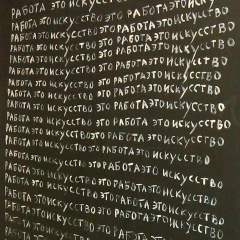 РАБОТА ЭТО ИСКУССТВО РАБОТАЭТОИСКУ
РАБОТА ЭТО ИСКУССТВО ЭТО РАБОТАЭТОИСКУССТВО
РАБОТА ЭТО ИСКУССТВО ЭТО РАБОТАЭТОИСКУССТВО
РАБОТА ЭТО ИСКУССТВО ЭТО РАБОТА ЭТО ИСКУССТВО
РАБОТА ЭТО ИСКУССТВО ЭТО РАБОТА ЭТО ИСКУССТВО
РАБОТА ЭТО ИСКУССТВО ЭТО РАБОТА ЭТО ИСКУССТВО
РАБОТА ЭТО ИСКУССТВО ЭТО РАБОТАЭТОИСКУССТВО
РАБОТА ЭТО ИСКУССТВО ЭТО РАБОТАЭТОИСКУССТВО
РАБОТА ЭТО ИСКУССТВОЭТО РАБОТАЭТОИСКУССТВО
РАБОТА ЭТО ИСКУССТВО ЭТО РАБОТАЭТОИСКУССТВО
РАБОТА ЭТО ИСКУССТВО ЭТО РАБОТАЭТОИСКУССТВО
РАБОТА ЭТО ИСКУССТВОЭТО РАБОТА ЭТО ИСКУССТВО
РАБОТА ЭТО ИСКУССТВО ЭТО РАБОТАЭТОИСКУССТВО
РАБОТА ЭТО ИСКУССТВО ЭТО РАБОТА ЭТО ИСКУССТВО
ЭТО ИСКУССТВО ЭТО РАБОТА ЭТО ИСКУССТВО